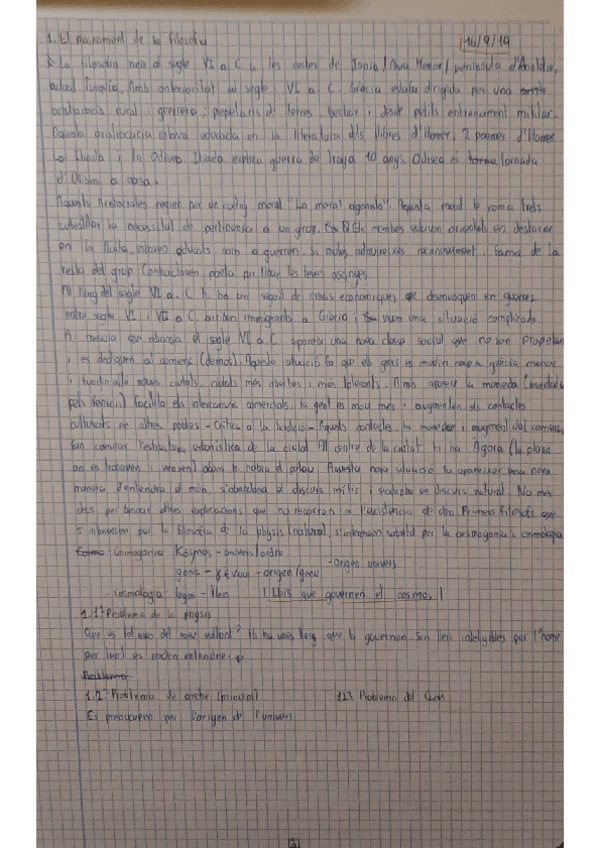 1. El naixement de la filosofia 16/9/19
La filosofia neix al segle VI a.C a les costes de Jonia / Àsia Menor / península d'Anatòlia,
actual Turquia. Amb anterioritat al segle VI a.C. Grècia estaba dirigida per una
aristocràcia rural i guerrera, propietaris de terres, bestiar i desde petits entrenament militar.
Aquesta aristocràcia estava educada en la literatura dels llibres d'Homer. 2 poemes d'Homer
La Iliada i la Odisea. Iliada explica guerra de Troya 10 anys. Odisea és tornada
d'Ulises a casa.
Aquests Aristocrates regien per un codig moral "La moral agonal". Aquesta moral
la necessitat de pertinença a un grup. Els membres estaven orientats en destacar
en la lluita, estaven educats com a guerrers. Si adquireixes reconeixement i fama de la
resta del grup
Al llarg del segle VI a.C hi ha un seguit de crisis economiques que desenvoquen en guerres.
entre segle VI i VII a.C. arriben immigrants a Grècia i viuen una situació complicada
A mesura que abansa el segle VI a.C. apareix una nova classe social que no son propietaris
i es dediquen al comerç (demos). Aquesta situació fa que els grecs es moguin cap a grècia menor
i fundin allà noves ciutats, ciutats més obertes i més tolerants. A més apareix la moneda (inventada
pels fenicis) facilita els intercanvis comercials, la gent es mou més i augmenten els contactes
culturals en altres pobles - Crítica a la tradició - Aquests contactes, la moneda i augment del comerç,
fan canviar l'estructura urbanística de la ciutat. Al centre de la ciutat hi ha Ágora (la plaza
on es trobaven i venien) abans hi habia el palau. Aquesta nova situació fa apareixer una nova
manera d'entendre el món, s'abandona el discurs mític i s'adopta un discurs natural. No més
deus per buscar altres explicacions que no recorrin a l'existència de déu. Primers filòsofs que
s'interessen per la filosofia de la physis (natural), s'interessen sobretot per la cosmogonia i cosmologia
Cosmogonia: Kosmos - univers/ordre
- origen univers
gonia - - origen/gènesi
· Cosmologia logos - llei | Lleis que governen el cosmos. |
1.1 Problema de la physis
Que és tot això del meu voltant? Hi ha unes lleis que la governen. Son lleis intel·ligibles per l'home
per tant es poden entendre.
1.2 Problema de arche (principi) 1.3 Problema del Caos
Es preocupen per l'origen de l'univers